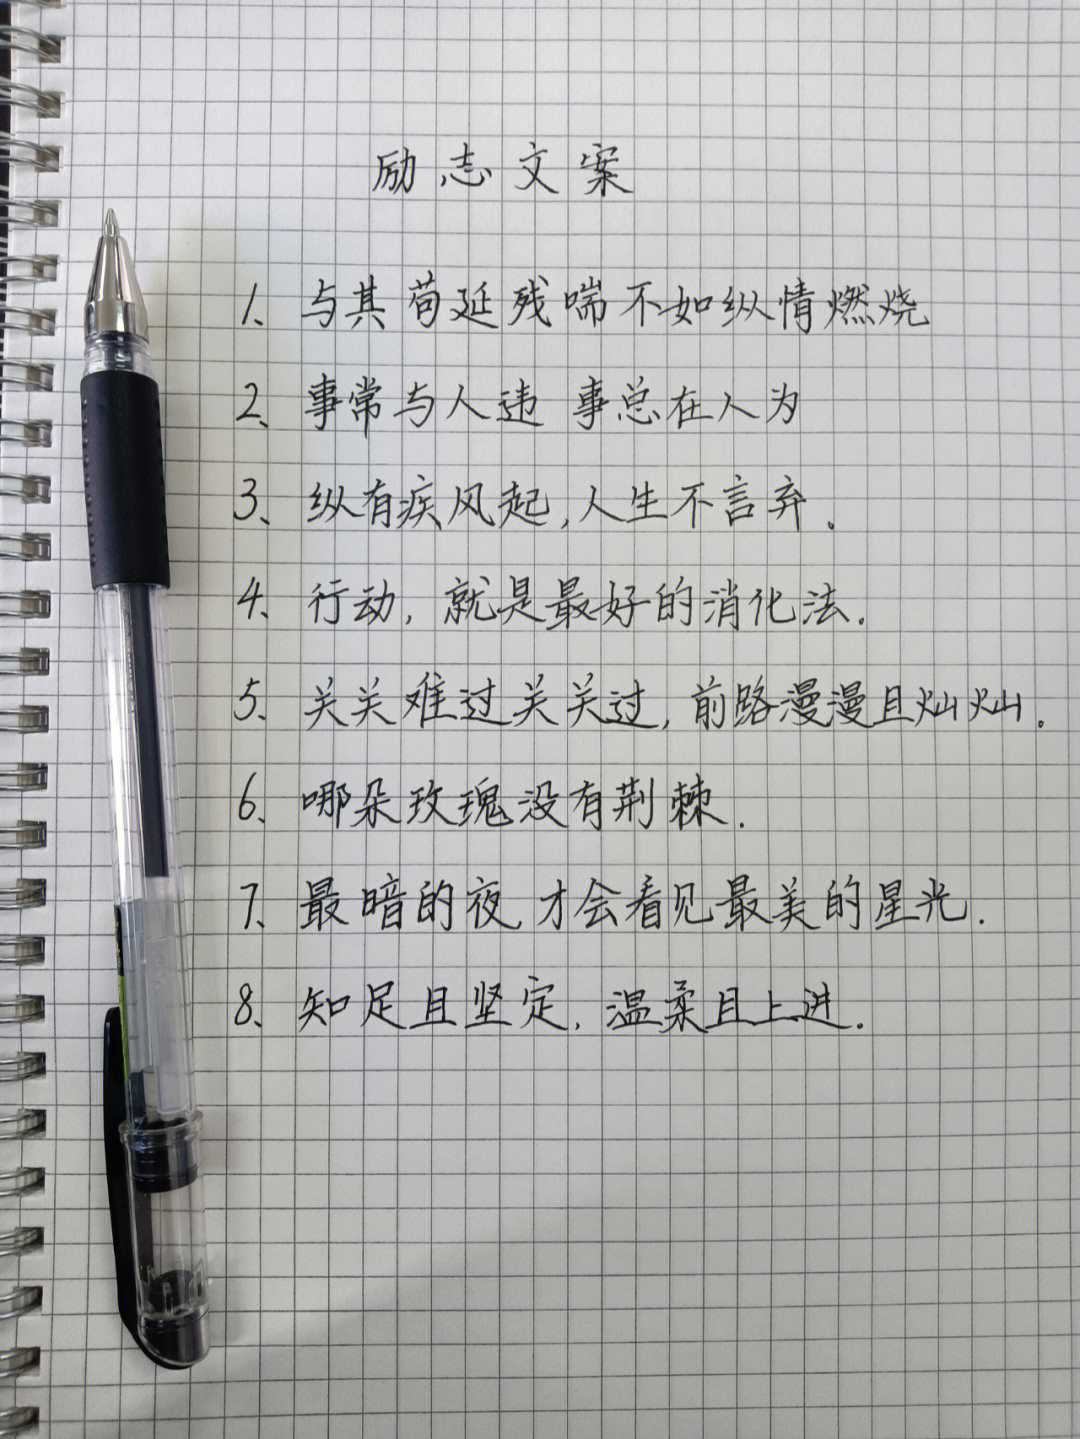 励志文案
1、与其苟延残喘不如纵情燃烧
2、事常与人违 事总在人为
3、纵有疾风起,人生不言弃.
4、行动,就是最好的消化法.
5、关关难过关关过,前路漫漫且灿灿.
6、哪朵玫瑰没有荆棘.
7、最暗的夜,才会看见最美的星光.
8、知足且坚定,温柔且上进.